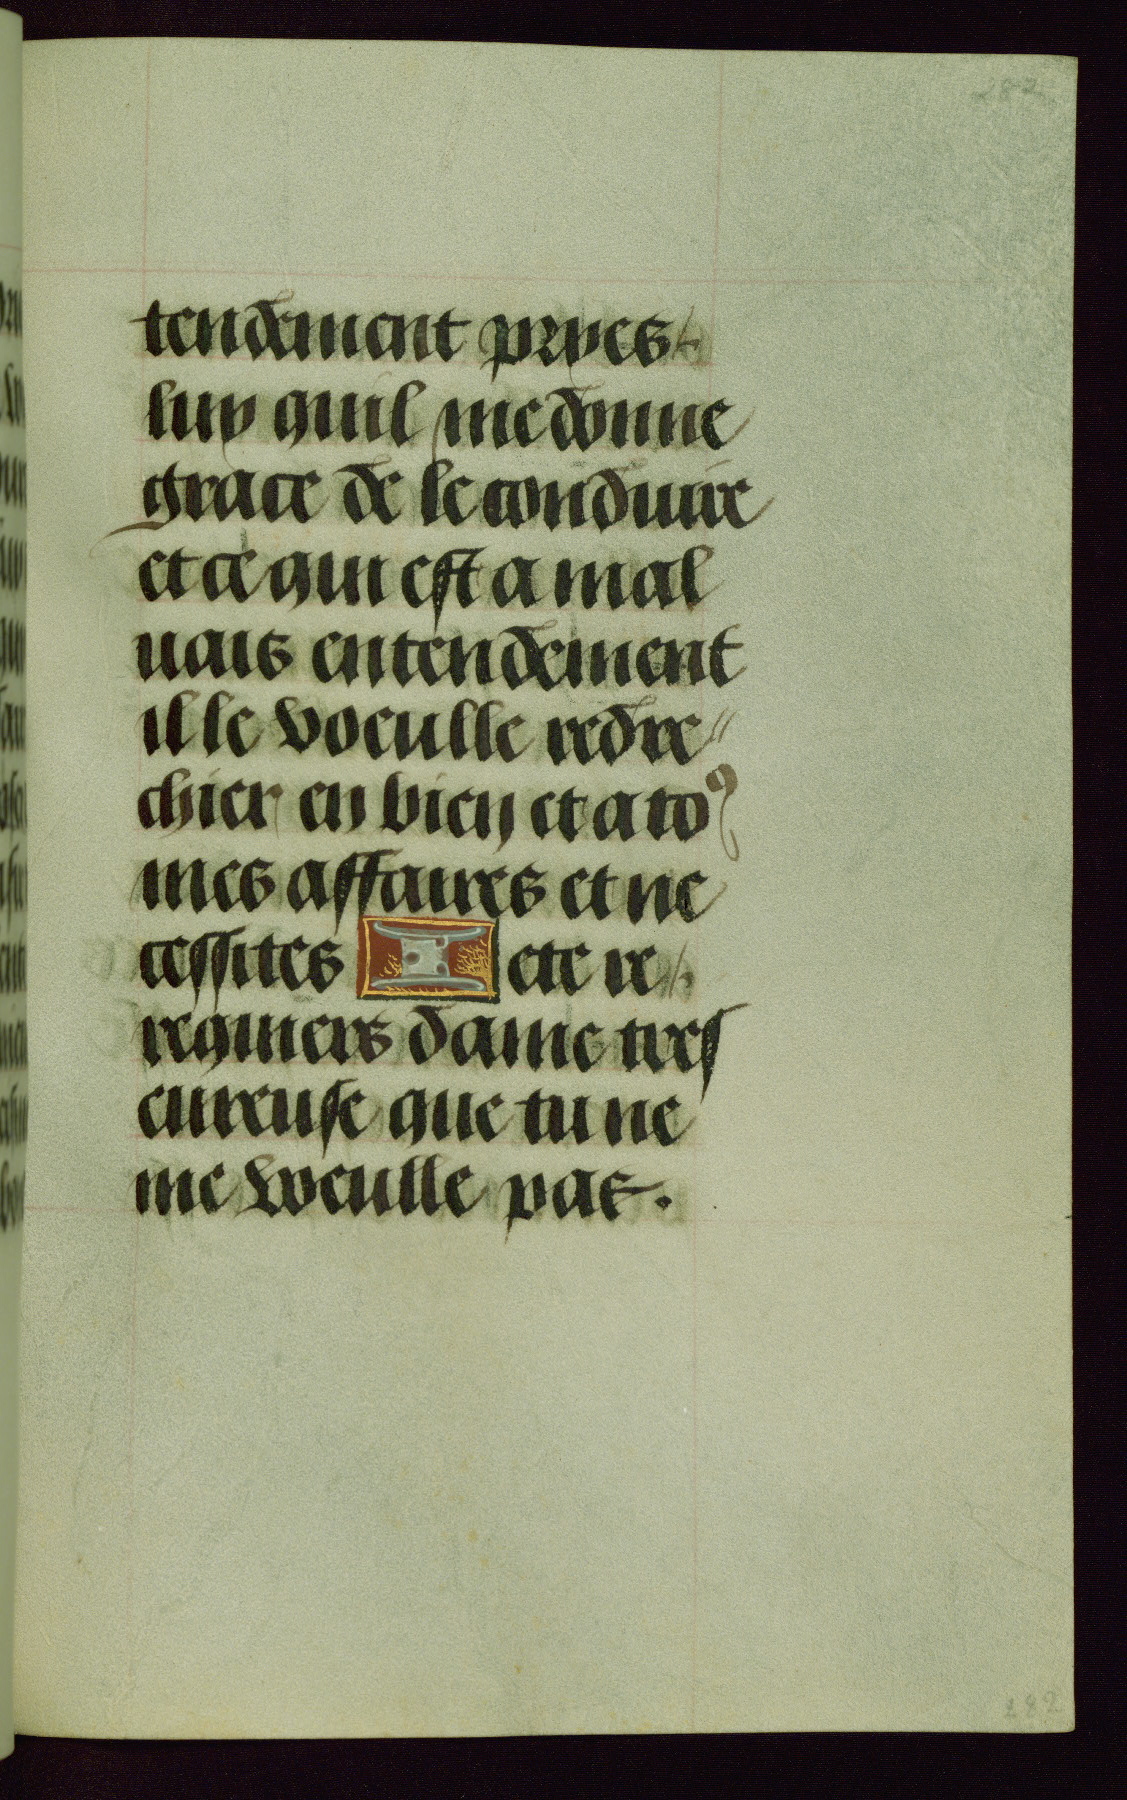 282
tendement pryes
luy quil me donne
grace de le conduire
et ce qui est a mal
uais entendement
il le voeulle redre
chier en bien et a toꝰ
mes affaires et ne
cessites Iete re
requiers dame tres
eureuse que tu ne
me voeulle pas.
282